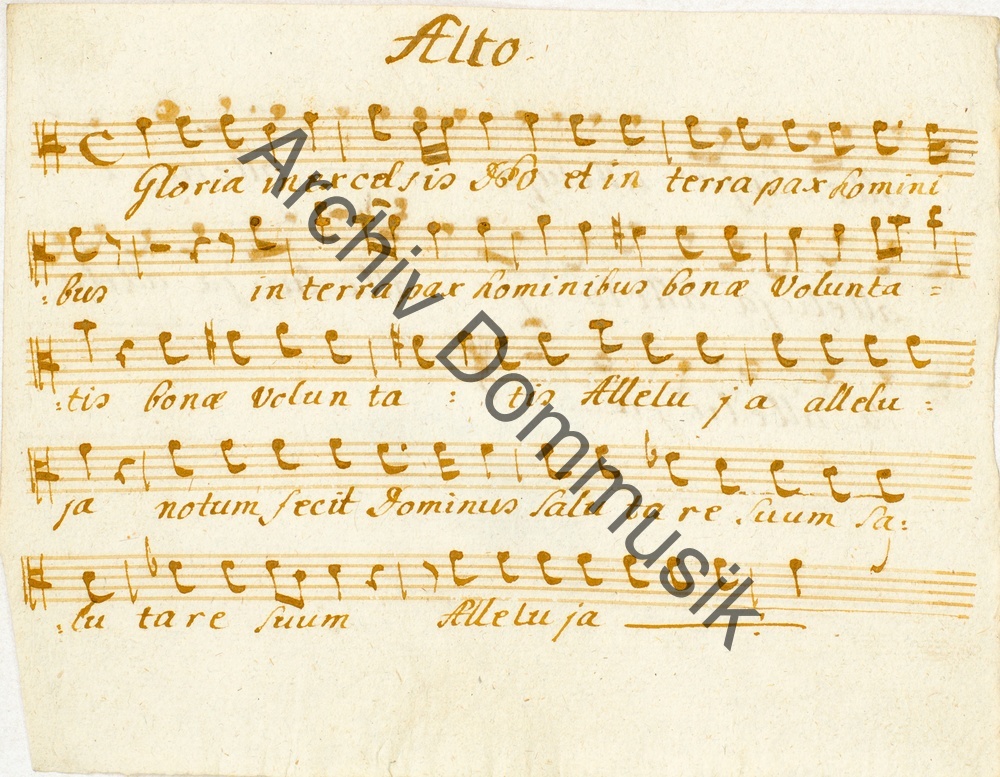 Alto.
Gloria in excelsis Deo et in terra pax homini
:bus in terra pax hominibus bonæ Volunta =
:tis bonæ Volun ta : tis Allelu ja allelu :
ja notum fecit Dominus Salu ta re Suum Sa:
:lu tare Suum Allelu ja
Archiv Dommusik